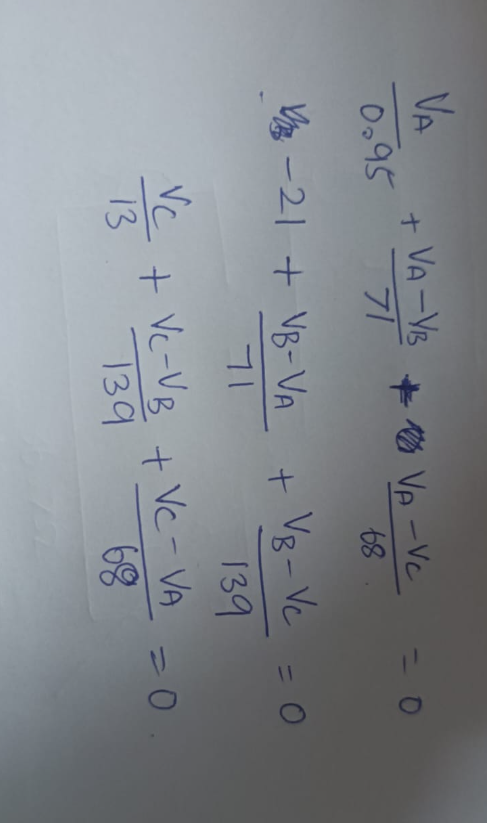 VA/0.95 + VA-VB/71 + VA-VC/68 = 0
-21 + VB-VA/71 + VB-VC/139 = 0
VC/13 + VC-VB/139 + VC-VA/68 = 0